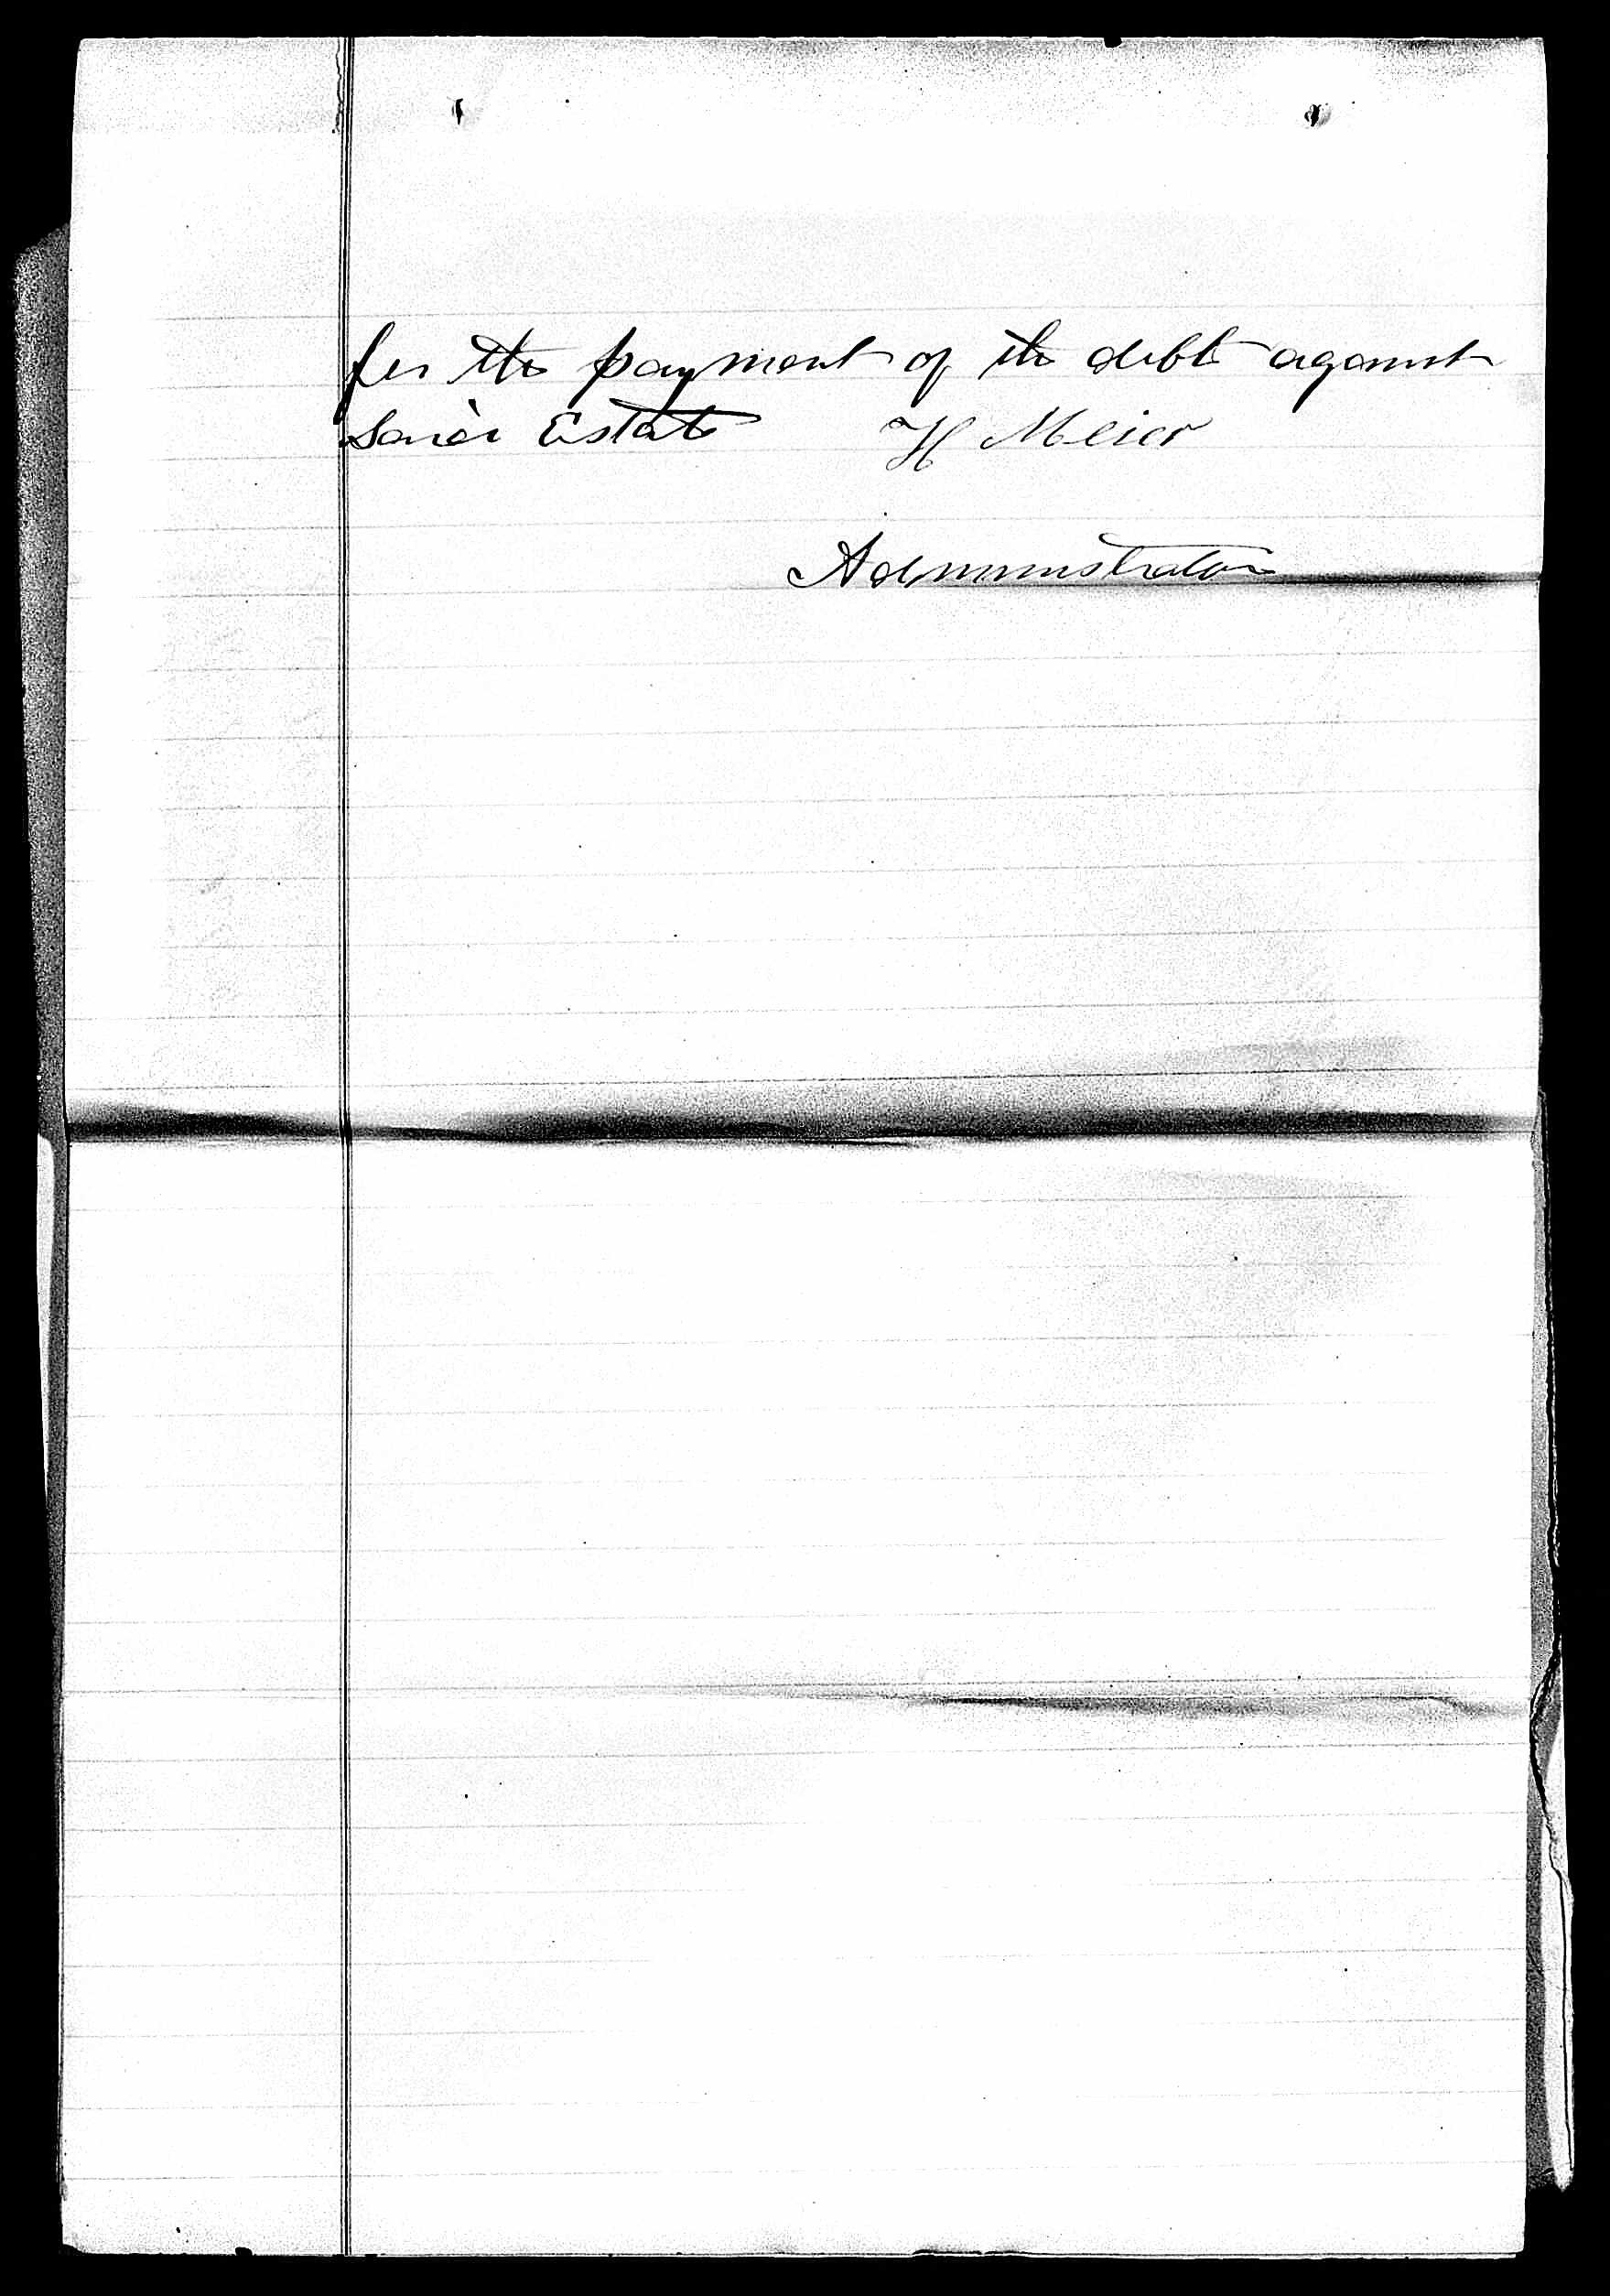 for the payment of the debts against
said Estate H Meier
Administrator